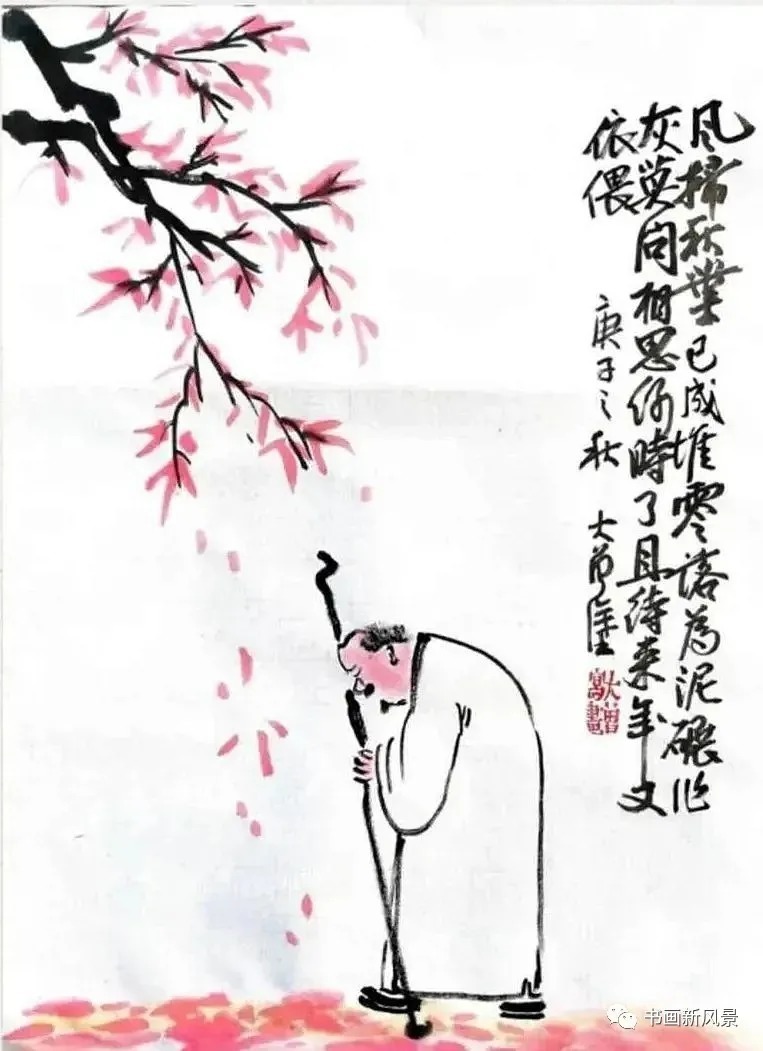 风掃秋葉已成堆零落為泥碾作
灰莫问相思何時了且待来年又
依偎
庚子之秋
书画新风景